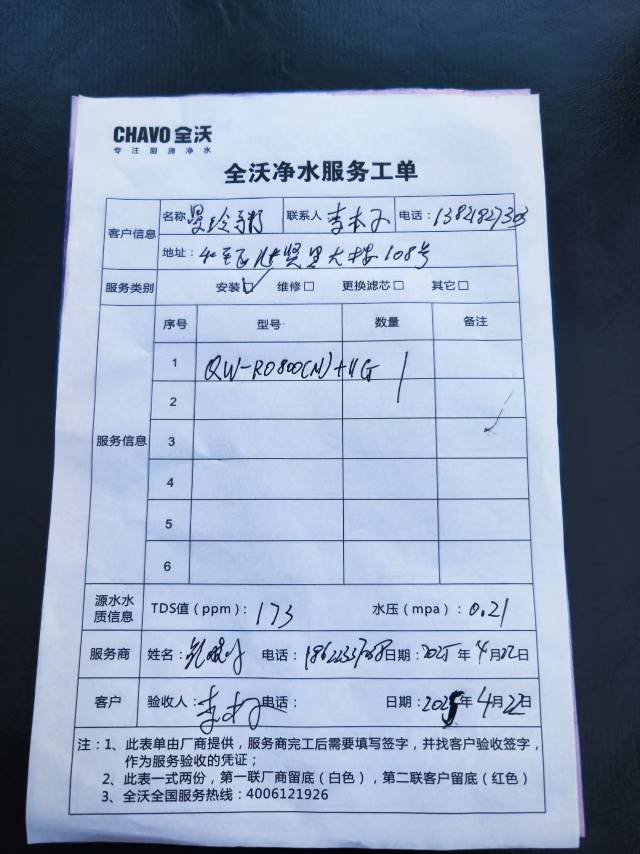 CHAVO 全沃
专注厨房净水
全沃净水服务工单
客户信息 名称 曼玲粥 联系人 李 电话：13821827303
地址： 贤里大楼108号
服务类别 安装☑ 维修□ 更换滤芯□ 其它□
服务信息 序号 型号 数量 备注
1 QW-RO800(N)+11G 1
2
3
4
5
6
源水水质信息 TDS值（ppm）：173 水压（mpa）：0.21
服务商 姓名： 电话： 日期：2025年4月22日
客户 验收人：李 电话： 日期：2025年4月22日
注：1、此表单由厂商提供，服务商完工后需要填写签字，并找客户验收签字，
作为服务验收的凭证；
2、此表一式两份，第一联厂商留底（白色），第二联客户留底（红色）
3、全沃全国服务热线：4006121926